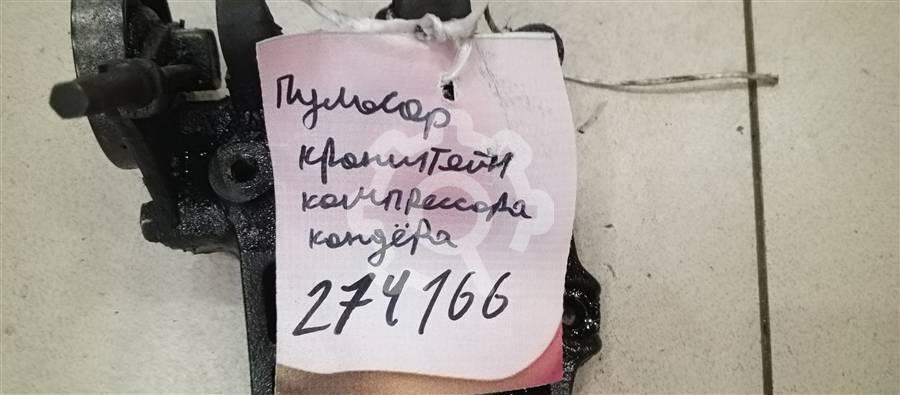 Пульсар
кронштейн
компрессора
кондёра
274166